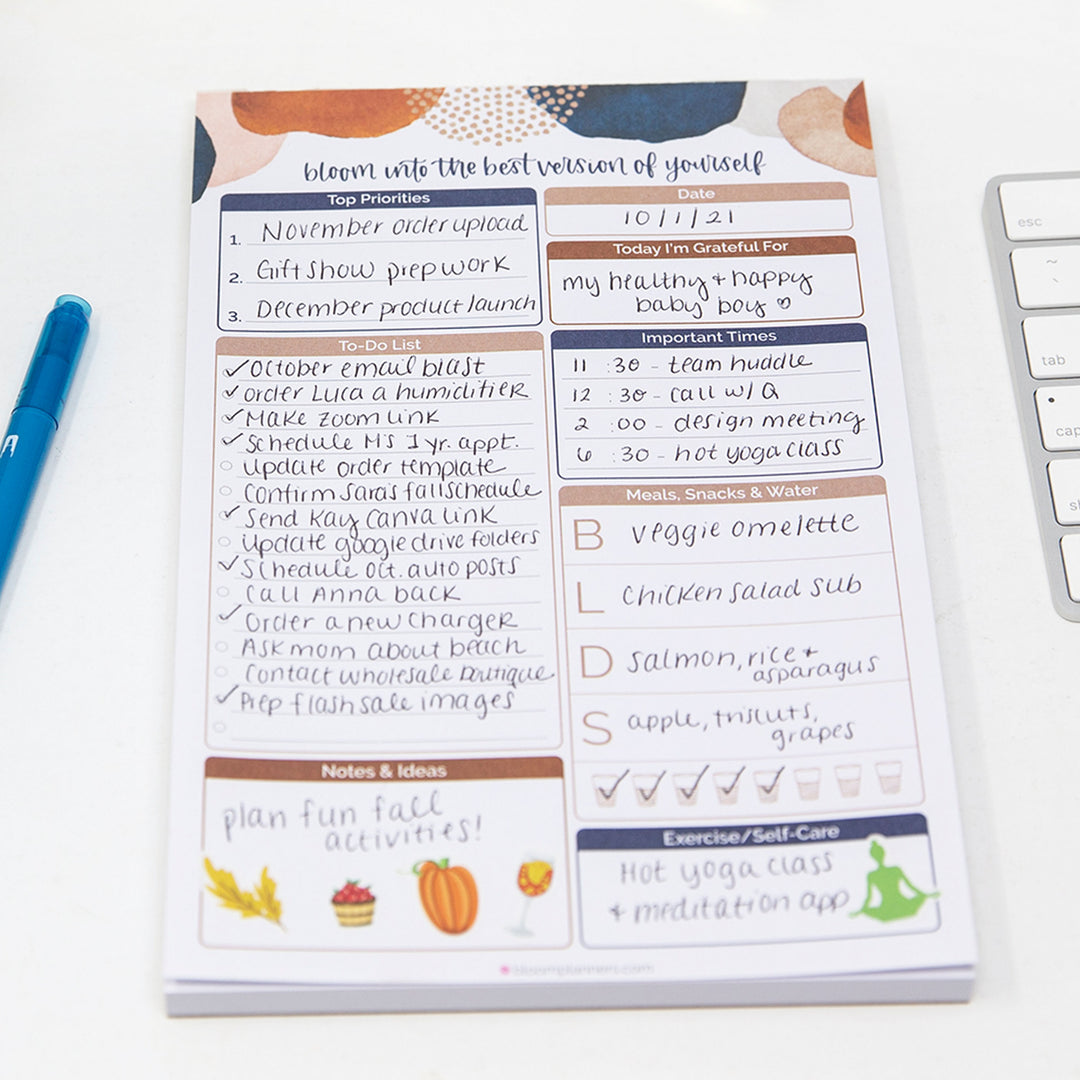 bloom into the best version of yourself
Top Priorities
1. November order upload
2. Gift Show prep work
3. December product launch
Date
10/1/21
Today I'm Grateful For
my healthy + happy
baby boy ♡
To-Do List
✓ October email blast
✓ order Luca a humidifier
✓ Make zoom link
✓ Schedule M's 1 yr. appt.
update order template
Confirm Sara's fall schedule
✓ Send Kay Canva link
update google drive folders
✓ Schedule Oct. auto posts
Call Anna back
✓ Order a new charger
Ask mom about beach
Contact wholesale boutique
✓ Prep flash sale images
Important Times
11 :30 - team huddle
12 :30 - call w/ Q
2 :00 - design meeting
6 :30 - hot yoga class
Meals, Snacks & Water
B veggie omelette
L chicken salad sub
D salmon, rice +
asparagus
S apple, triscuts,
grapes
Notes & Ideas
plan fun fall
activities!
Exercise/Self-Care
Hot yoga class
+ meditation app
bloomplanners.com
A
esc
~
`
tab
cap
sh